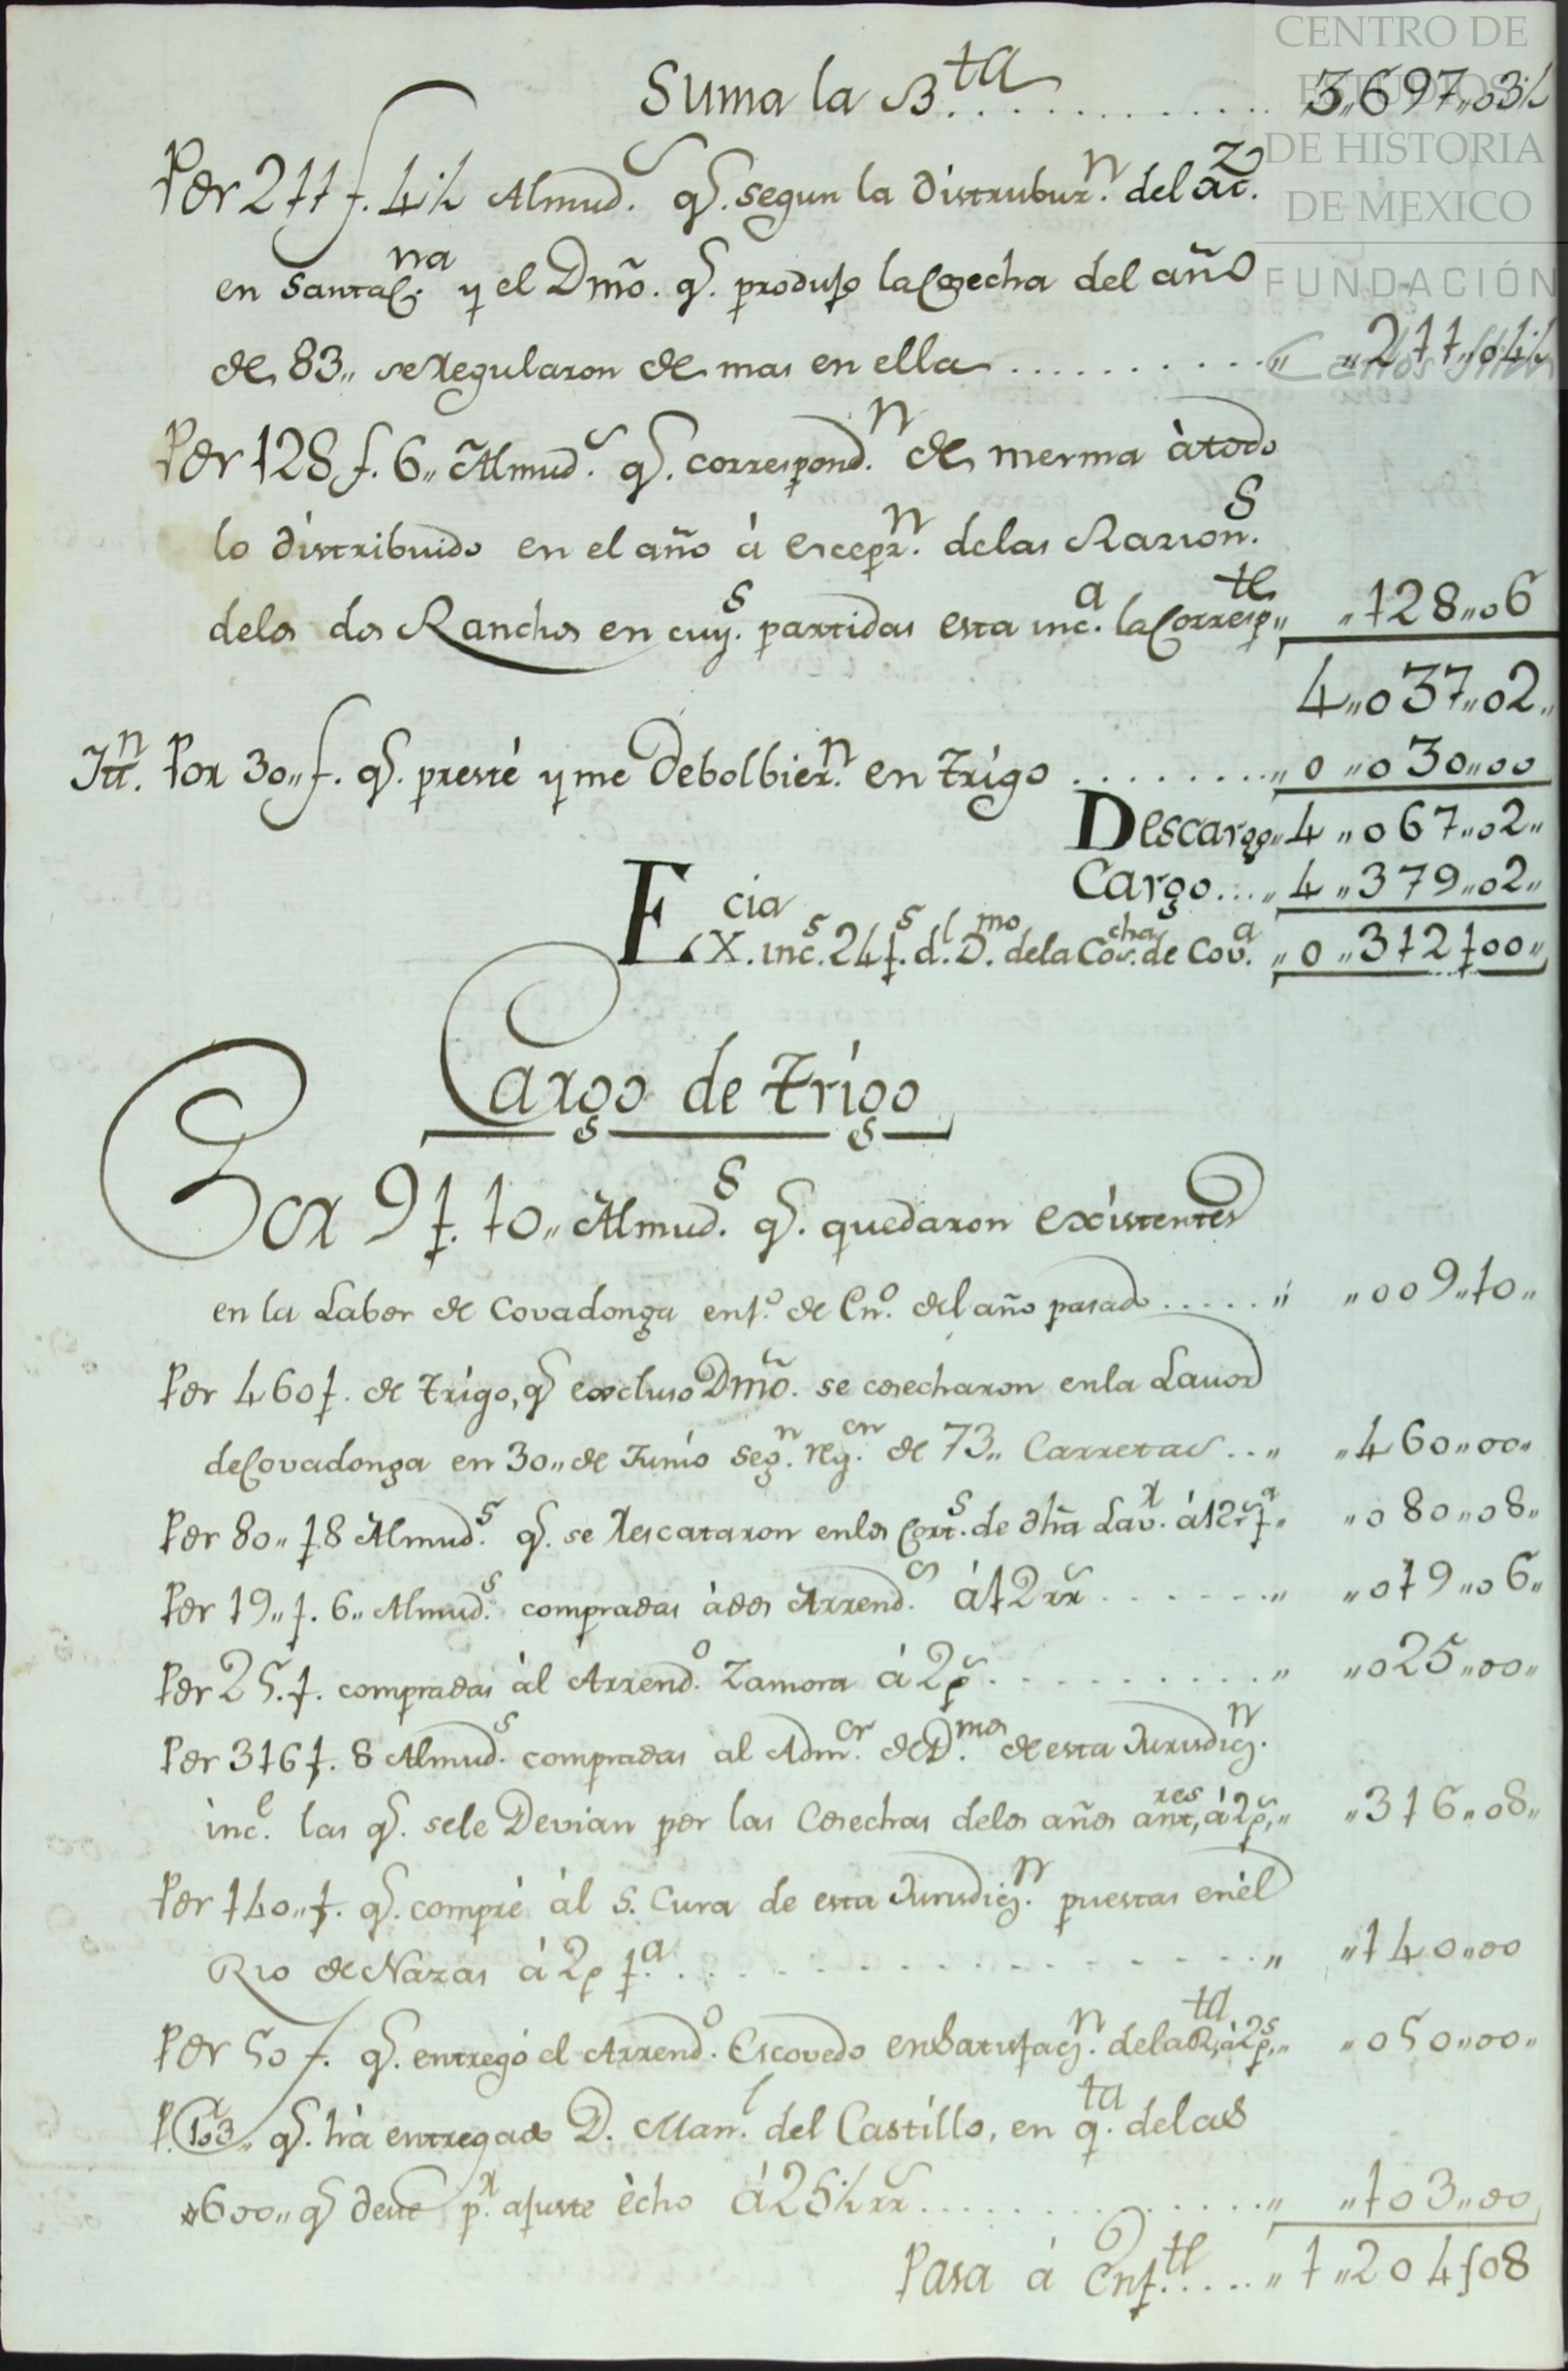 CENTRO DE
ESTUDIOS
DE HISTORIA
DE MEXICO
FUNDACIÓN
Carlos Slim
Suma la B.ta ............ 3,,697,,03½
Por 211 f. 4½ Almud.s q.e segun la distrubuz.n del Az.
en Santa C.na y el Dmõ. q.e produjo la Cosecha del año
de 83,, se regularon de mas en ella .......... ,, ,,211,,04½
Por 128 f. 6,, Almud.s q.e correspond.n de merma à todo
lo distribuido en el año á escepz.n delas Razion.s
delos dos Ranchos en cuy.s partidas esta inc.a la Corresp.te ,, ,,128,,06
4,,037,,02,,
Itt.n Por 30,, f. q.e presté y me Debolbier.n en trigo ......... ,, 0 ,,030,,00
Descargo,, 4 ,,067,,02,,
Cargo... ,, 4 ,,379,,02,,
EX.cia inc.s 24 f.s d.l D.mo dela Cos.cha de Cov.a ,, 0 ,,312 f 00,,
Cargo de trigo
Por 9 f. 10,, Almud.s q.e quedaron existentes
en la Labor de Covadonga en f.o de En.o del año pasado ..... ,, ,,009,,10,,
Por 460 f. de trigo, q.e excluso Dmõ. se cosecharon en la Lavor
de Covadonga en 30,, de Junio seg.n reg.on de 73,, Carretas .. ,, ,,460,,00,,
Por 80,, f. 8 Almud.s q.e se rescataron en los Cort.s de dhã Lav.r á 12 rr.s f.a ,, ,,080,,08,,
Por 19,, f. 6,, Almud.s compradas à dos Arrend.os á 12 rr.s ...... ,, ,,019,,06,,
Por 25. f. compradas àl Arrend.o Zamora á 2 p.s .......... ,, ,,025,,00,,
Por 316 f. 8 Almud.s compradas al Adm.or de D.mos de esta Jurisdicj.n
inc.e las q.e sele Devian por las Cosechas delos años ant,res á 2 p.s,, ,,316,,08,,
Por 140,, f. q.e compré àl S. Cura de esta Jurisdicj.n puestas en èl
Rio de Nazas á 2 p f.a .................... ,, ,,140,,00
Por 50 f. q.e entregó el Arrend.o Escovedo en Satisfacj.n dela R,ta à 2 p.s,, ,,050,,00,,
P. 103,, q.e hà entregado D. Man.l del Castillo, en q.ta delas
600,, q.e deve p.r ajuste ècho á 25½ rr.s ............... ,, ,,103,,00
Pasa á Enf.te ..... ,, 1 ,,204 f 08